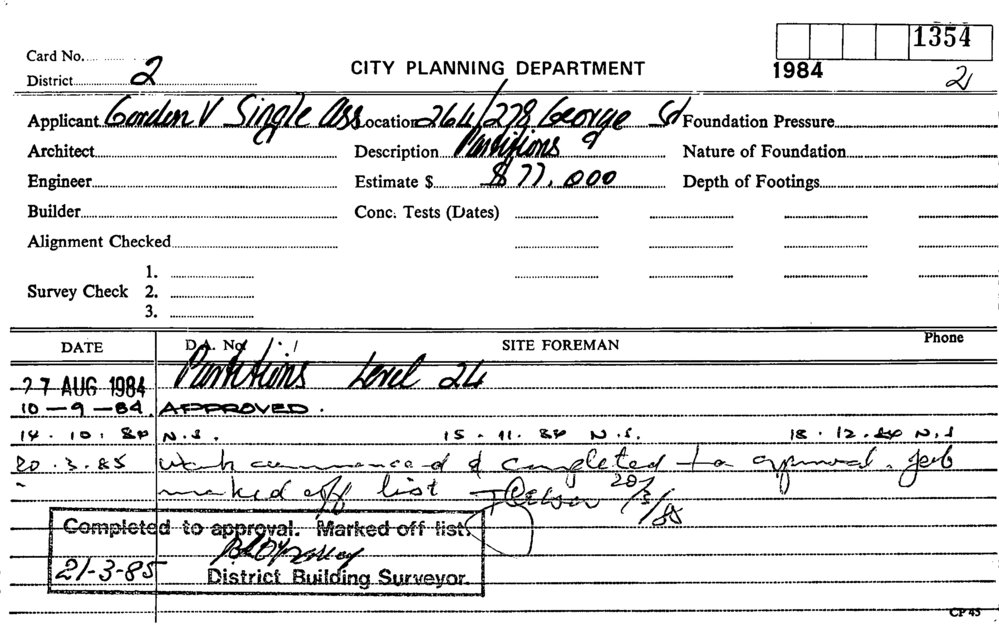 1354
Card No.
CITY PLANNING DEPARTMENT
1984
District 2
2
Applicant Gordon V Single Ass Location 264/278 George St Foundation Pressure
Architect Description Partitions Nature of Foundation
Engineer Estimate $ $77,000 Depth of Footings
Builder Conc. Tests (Dates)
Alignment Checked
1.
Survey Check 2.
3.
DATE D.A. No. SITE FOREMAN Phone
27 AUG 1984 Partitions Level 24
10-9-84. APPROVED.
14.10.84 N.S. 15.11.84 N.S. 18.12.84 N.S
20.3.85 Work commenced & completed to approval. Job
marked off list 20/3/85
Completed to approval. Marked off list.
21-3-85 District Building Surveyor.
CP 45